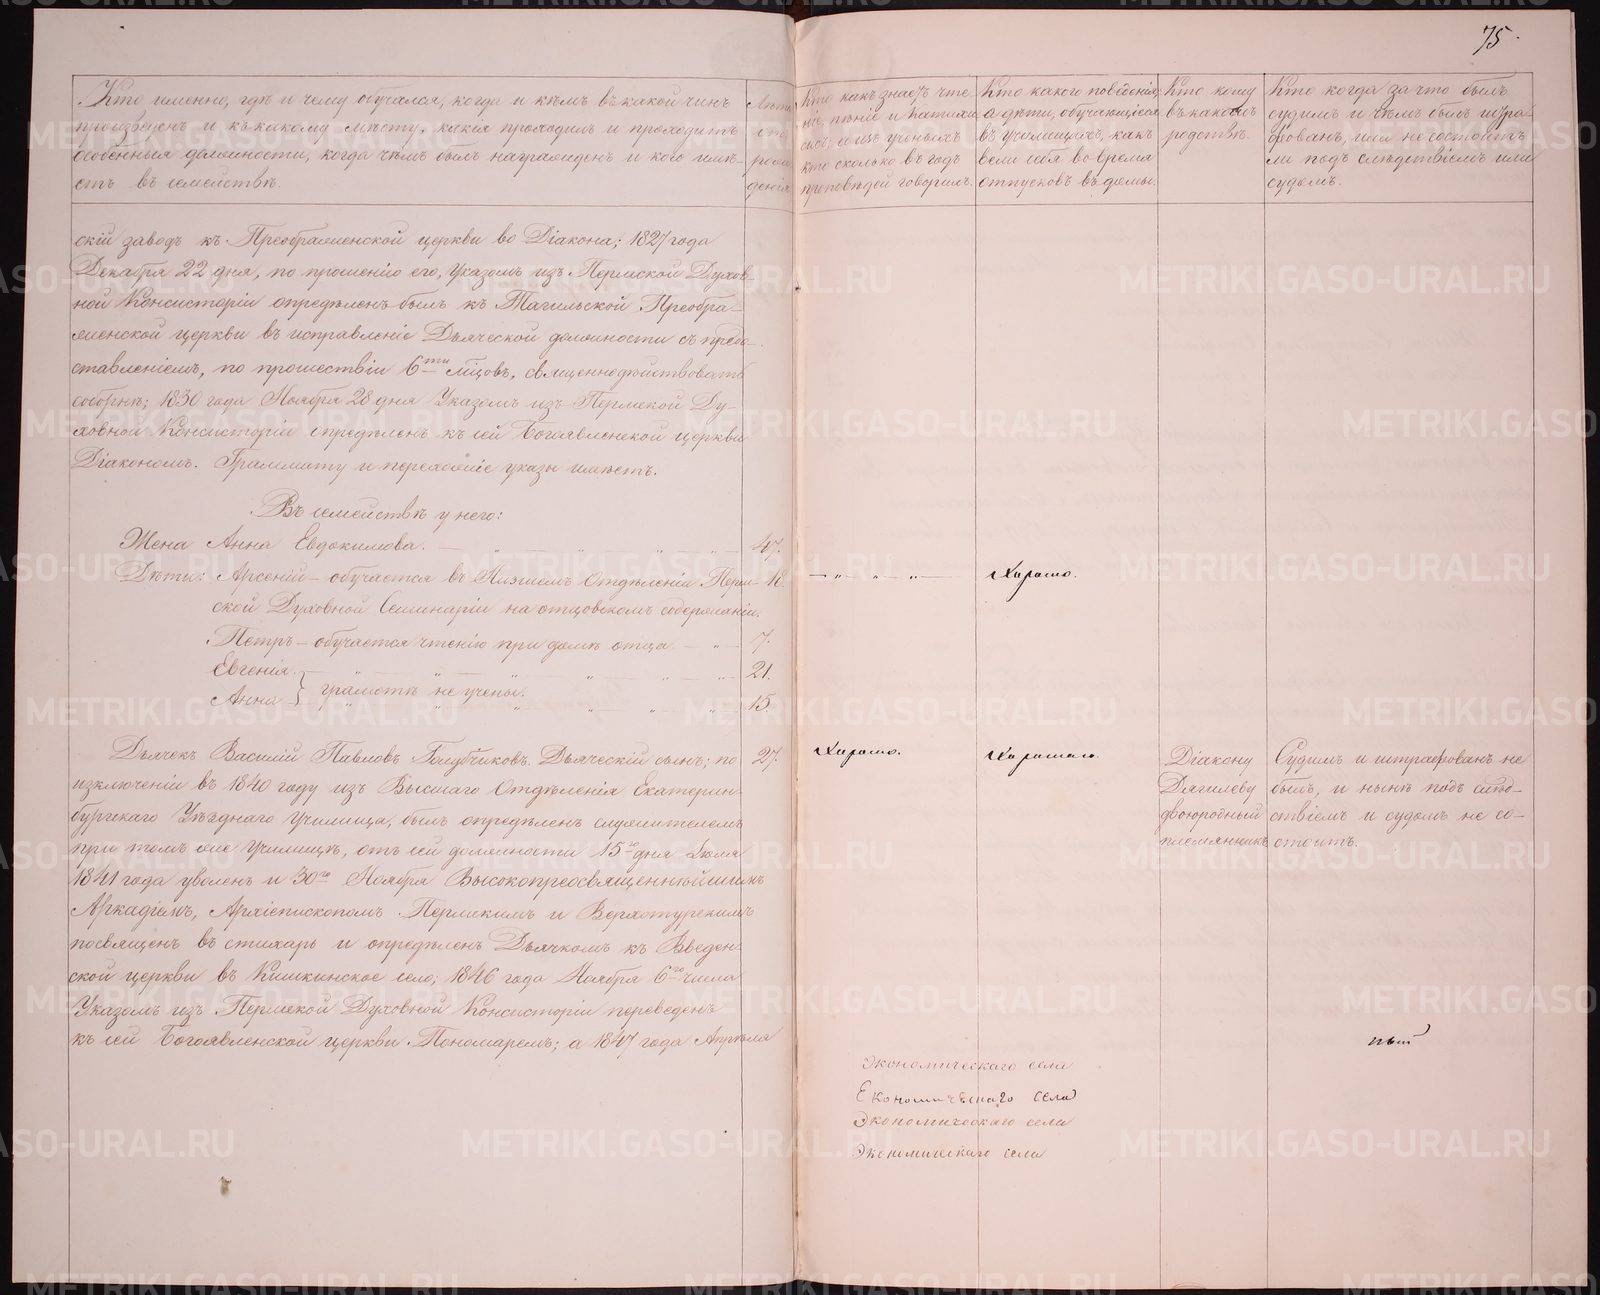 75.
Кто именно, гдѣ и чему обучался, когда и кѣмъ въ какой чинъ
произведенъ и къ какому мѣсту, какія проходилъ и проходитъ
особенныя должности, когда чѣмъ былъ награжденъ и кого имѣ-
етъ въ семействѣ.
Лѣта
отъ
рож
денія
Кто какъ знаетъ чте
ніе, пѣніе и катихи
зисъ, и изъ ученыхъ
кто сколько въ годъ
проповѣдей говорилъ.
Кто какого поведенія,
а дѣти, обучающіяся
въ училищахъ, какъ
вели себя во время
отпусковъ въ домы.
Кто кому
въ какомъ
родствѣ.
Кто когда за что былъ
судимъ и чѣмъ былъ штра
фованъ, или не состоитъ
ли подъ слѣдствіемъ или
судомъ.
скій заводъ къ Преображенской церкви во Діакона; 1827 года
Декабря 22 дня, по прошенію его, Указомъ изъ Пермской Духов
ной Консисторіи опредѣленъ былъ къ Тагильской Преобра-
женской церкви въ исправленіе Дьяческой должности съ предо-
ставленіемъ, по прошествіи 6ти м͠цовъ, священнодѣйствовать
соборнѣ; 1830 года Ноября 28 дня Указомъ изъ Пермской Ду-
ховной Консисторіи опредѣленъ къ сей Богоявленской церкви
Діакономъ. Граммату и перехожіе указы имѣетъ.
Въ семействѣ у него:
Жена Анна Евдокимова. 47.
Дѣти: Арсеній – обучается въ Низшемъ Отдѣленіи Перм- 18 Хорошо.
ской Духовной Семинаріи на отцовскомъ содержаніи.
Петръ – обучается чтенію при домѣ отца. 7.
Евгенія. 21.
грамотѣ не учены.
Анна 15.
Дьячекъ Василій Павловъ Голубчиковъ. Дьяческій сынъ; по 27.
изключеніи въ 1840 году изъ Высшаго Отдѣленія Екатерин-
бургскаго Уѣзднаго Училища, былъ опредѣленъ служителемъ
при томъ же Училищѣ, отъ сей должности 15го дня Іюля
1841 года уволенъ и 30го Ноября Высокопреосвященнѣйшимъ
Аркадіемъ, Архіепископомъ Пермскимъ и Верхотурскимъ
посвященъ въ стихарь и опредѣленъ Дьячкомъ къ Введен-
ской церкви въ Кишкинское село; 1846 года Ноября 6го числа
Указомъ изъ Пермской Духовной Консисторіи переведенъ
къ сей Богоявленской церкви Пономаремъ; а 1847 года Апрѣля
Хорошо.
Хорошаго.
Діакону
Дягилеву
двоюродный
племянникъ
Судимъ и штрафованъ не
былъ, и нынѣ подъ слѣд-
ствіемъ и судомъ не со-
стоитъ.
ный
Экономическаго села
Економическаго села
Экономическаго села
Экономическаго села
METRIKI.GASO-URAL.RU